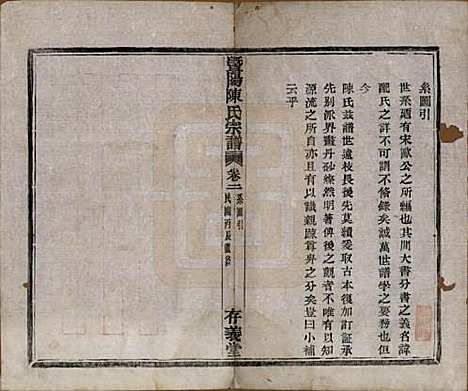 系圖引
世系迺有宋歐公之所立也其間大書分書之義名諱
配氏之詳不可謂不條錄矣誠萬世譜學之要務也但
今
陳氏茲譜世遠枝長後先莫續爰取古本復加訂証承
先別派界畫丹砂燦然明著俾後之觀者不唯有以知
源流之所自亦且有以識親疎尊卑之分矣豈曰小補
云乎
暨陽陳氏宗譜 卷二 系圖引
民國丙辰重修
存義堂